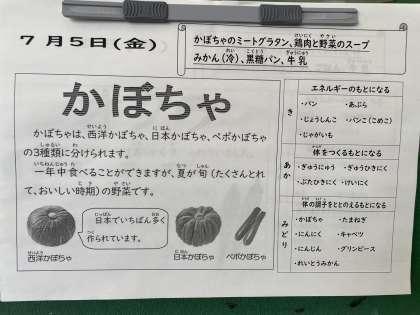 7月5日(金)
かぼちゃのミートグラタン、鶏肉と野菜のスープ
みかん(冷)、黒糖パン、牛乳
かぼちゃ
かぼちゃは、西洋かぼちゃ、日本かぼちゃ、ペポかぼちゃ
の3種類に分けられます。
一年中食べることができますが、夏が旬(たくさんとれ
て、おいしい時期)の野菜です。
日本でいちばん多く
作られています。
西洋かぼちゃ
日本かぼちゃ
ペポかぼちゃ
き
エネルギーのもとになる
・パン ・あぶら
・じょうしんこ ・パンこ(こめこ)
・じゃがいも
あか
体をつくるもとになる
・ぎゅうにゅう ・ぎゅうひきにく
・ぶたひきにく ・けいにく
みどり
体の調子をととのえるもとになる
・かぼちゃ ・たまねぎ
・にんにく ・キャベツ
・にんじん ・グリンピース
・れいとうみかん